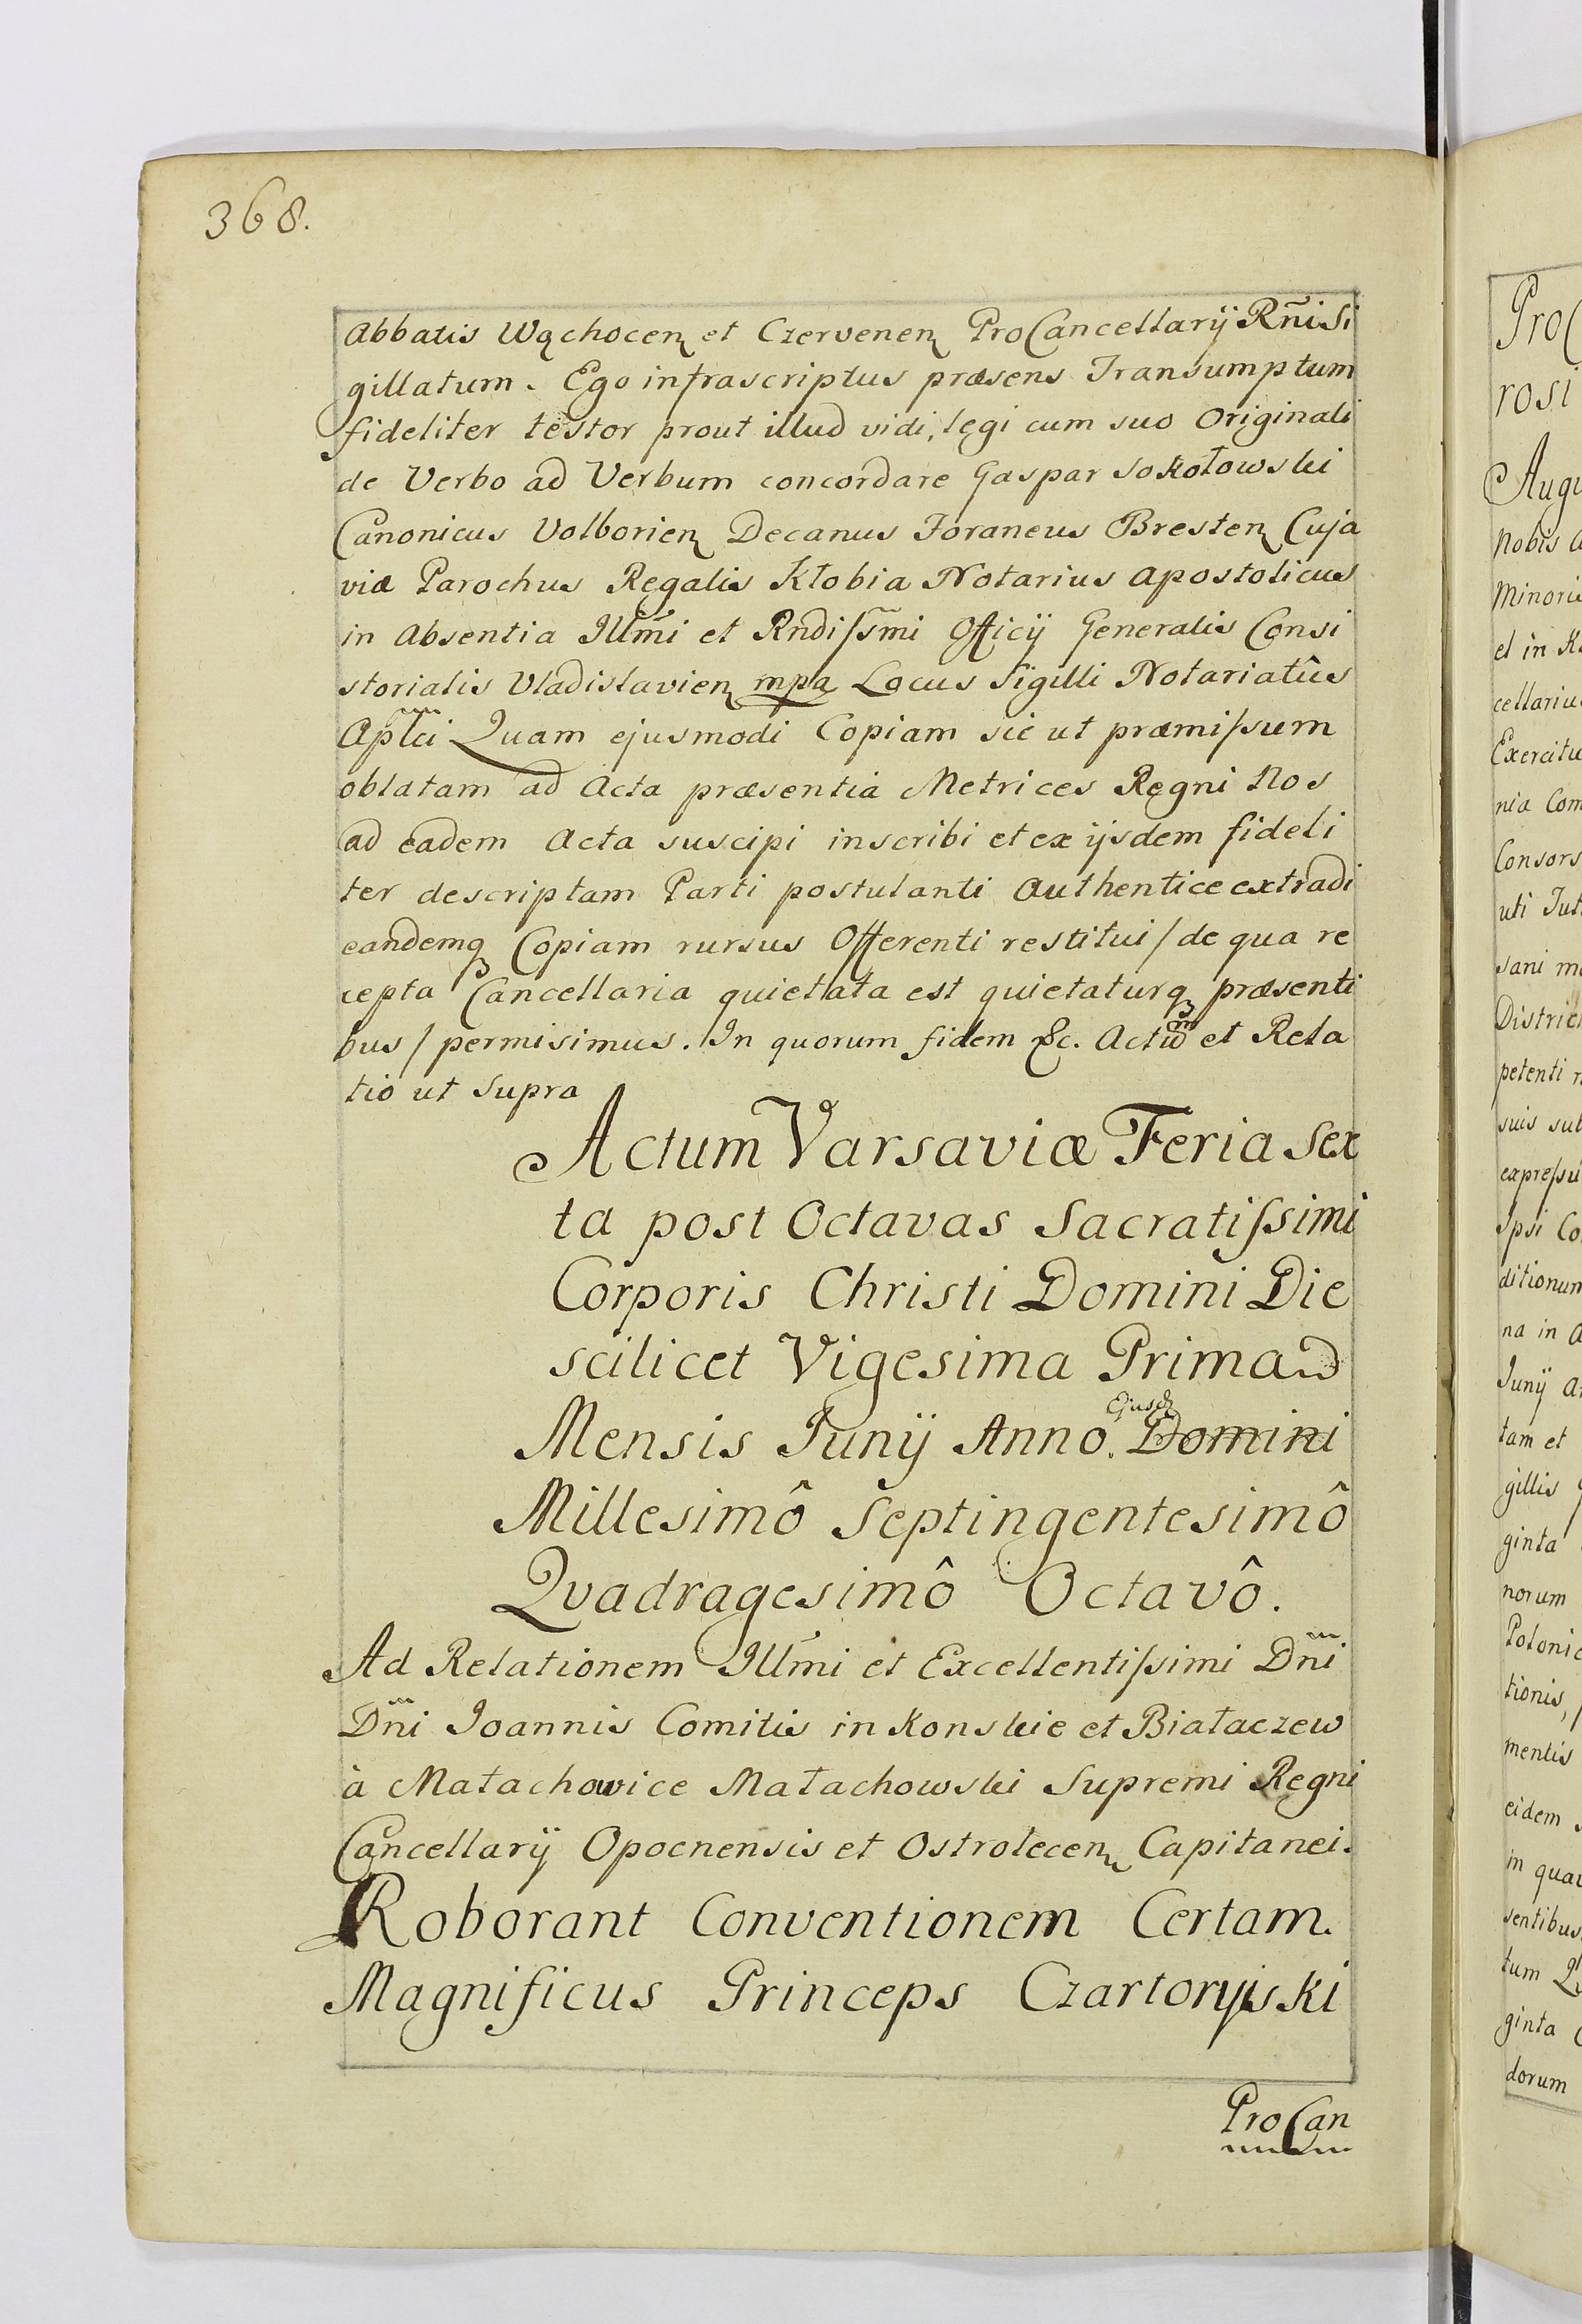 368.
Abbatis Wąchocen et Czervenen ProCancellarij Rñi Si
gillatum. Ego infrascriptus præsens Transumptum
fideliter testor prout illud vidi, legi cum suo Originali
de Verbo ad Verbum concordare Gaspar Sokołowski
Canonicus Volborien Decanus Foraneus Bresten Cuja
viæ Parochus Regalis Kłobia Notarius Apostolicus
in Absentia Illm̃i et Rndiſsm̃i Officij Generalis Consi
storialis Vladislavien mpa Locus Sigilli Notariatûs
Aplc̃i Quam ejusmodi Copiam sic ut præmiſsum
oblatam ad Acta præsentia Metrices Regni Nos
ad eadem Acta suscipi inscribi et ex ijsdem fideli
ter descriptam Parti postulanti Authentice extradi
eandemq Copiam rursus Offerenti restitui / de qua re
cepta Cancellaria quietata est quietaturq præsenti
bus / permisimus. In quorum fidem &c. Actum et Rela
tio ut Supra
Actum Varsaviæ Feria Sex
ta post Octavas Sacratiſsimi
Corporis Christi Domini Die
scilicet Vigesima Prima
Mensis Junij Anno. Ejusd Domini
Millesimô Septingentesimô
Qvadragesimô Octavô.
Ad Relationem Illm̃i et Excellentiſsimi Dñi
Dñi Joannis Comitis in Konskie et Białaczew
à Małachowice Małachowski Supremi Regni
Cancellarij Opocnensis et Ostrolecen Capitanei.
Roborant Conventionem Certam.
Magnificus Princeps Czartoryiski
ProCan
ProC
rosi
Augu
Nobis a
Minoris
et in K
cellariu
Exercitu
nia Com
Consors
uti Jut
sani m
Distric
petenti r
suis sub
expreſsu
Ipsi Co
ditionum
na in a
Junij a
tam et
gillis
ginta
norum
Poloniæ
tionis,
mentis
eidem
in qua
sentibus
tum
ginta
dorum